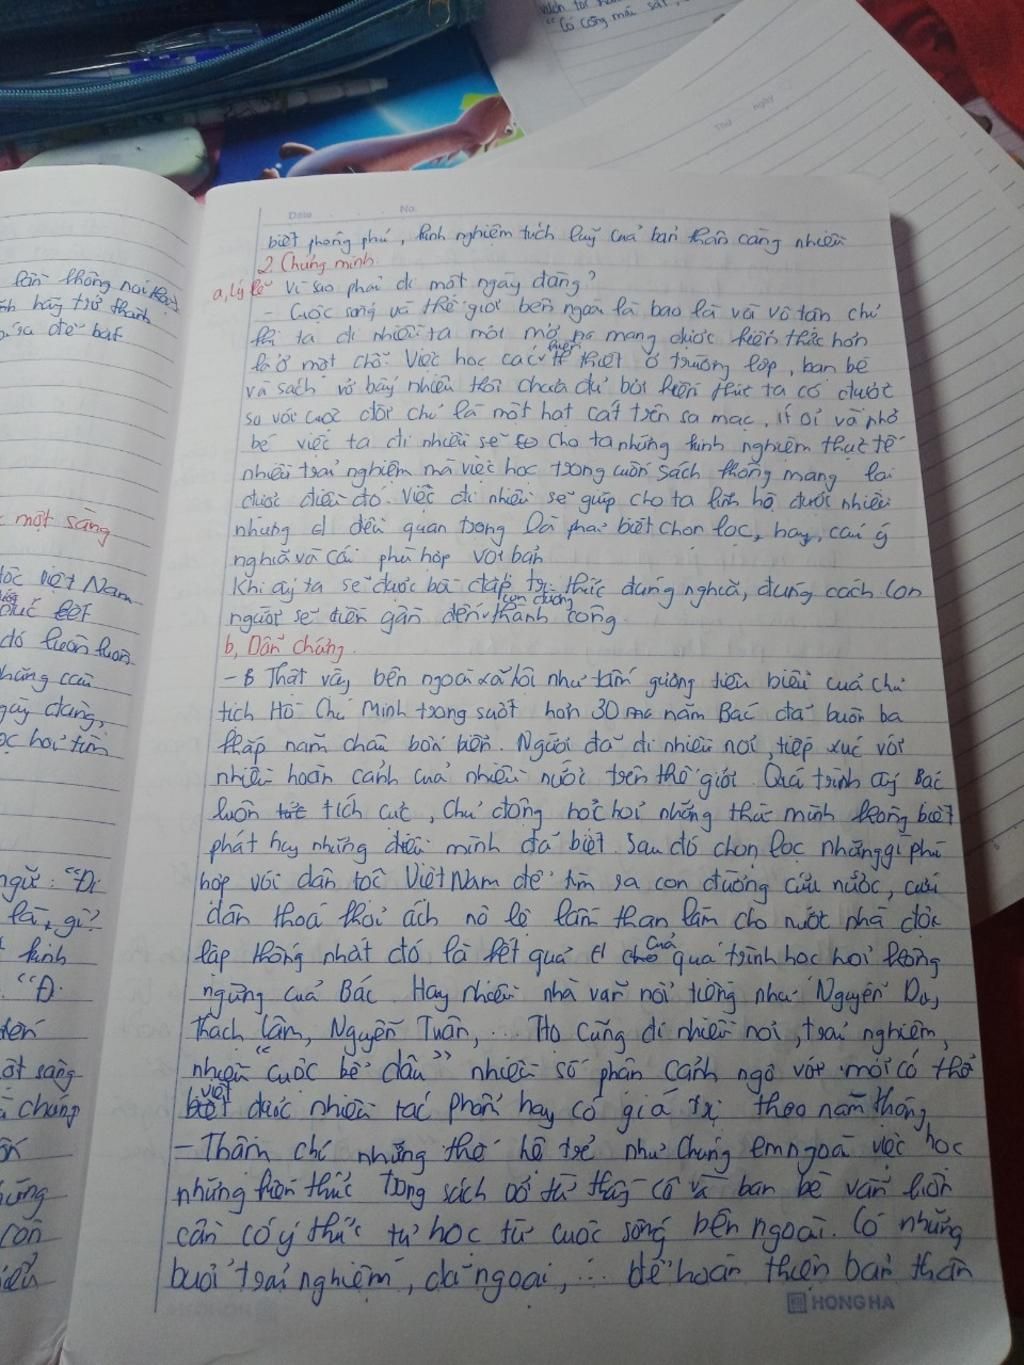 biết phong phú, kinh nghiệm tích luỹ cuả bản thân càng nhiều
2. Chứng minh
a, Lý lẽ Vì sao phải đi một ngày đàng?
- Cuộc sống và thế giới bên ngoài là bao la và vô tân chỉ
khi ta đi nhiều ta mới mở mang được kiến thức hơn
là ở một chỗ. Việc học các lý thiết ở trường lớp, bạn bè
và sách vở bấy nhiêu thôi chưa đủ bởi kiến thức ta có được
so với cuộc đời chỉ là một hạt cát trên sa mạc, ít ỏi và nhỏ
bé việc ta đi nhiều sẽ cho ta những kinh nghiệm thực tế
nhiều trải nghiệm mà việc học trong cuốn sách không mang lại
được điều đó. Việc đi nhiều sẽ giúp cho ta lĩnh hộ được nhiều
nhưng đ điều quan trọng là phải biết chọn lọc, hay, cái ý
nghiã và cái phù hợp với bản
Khi ấy ta sẽ được bồi đắp tri thức đúng nghiã, đúng cách con
người sẽ tiến gần đến con đường thành công.
b, Dẫn chứng.
- Thật vậy bên ngoài xã hôi như tấm gương tiêu biểu cuả chủ
tịch Hồ Chí Minh trong suốt hơn 30 năm Bác đã buôn ba
khắp năm châu bốn biển. Người đã đi nhiều nơi, tiếp xúc với
nhiều hoàn cảnh cuả nhiều nước trên thế giới. Quá trình ấy Bác
luôn tích cực, chủ động học hỏi những thứ mình không biết
phát huy những điều mình đã biết. Sau đó chọn lọc những gì phù
hợp với dân tộc Việt Nam để tìm ra con đường cứu nước, cứu
dân thoá khỏi ách nô lệ lầm than làm cho nước nhà độc
lập thống nhất đó là kết quả của quá trình học hỏi không
ngừng cuả Bác. Hay nhiều nhà văn nổi tiếng như Nguyễn Du,
Thạch Lam, Nguyễn Tuân, ... Họ cũng đi nhiều nơi, trải nghiệm,
nhiều "cuộc bể dâu" nhiều số phận cảnh ngộ với mới có thể
viết được nhiều tác phẩm hay có giá trị theo năm tháng
- Thậm chí những thế hệ trẻ như chúng em ngoài việc học
những kiến thức trong sách vở từ thầy cô và bạn bè vẫn luôn
cần có ý thức tự học từ cuộc sống bên ngoài. Có những
buổi trải nghiệm, dã ngoại, ... để hoàn thiện bản thân
HONG HA